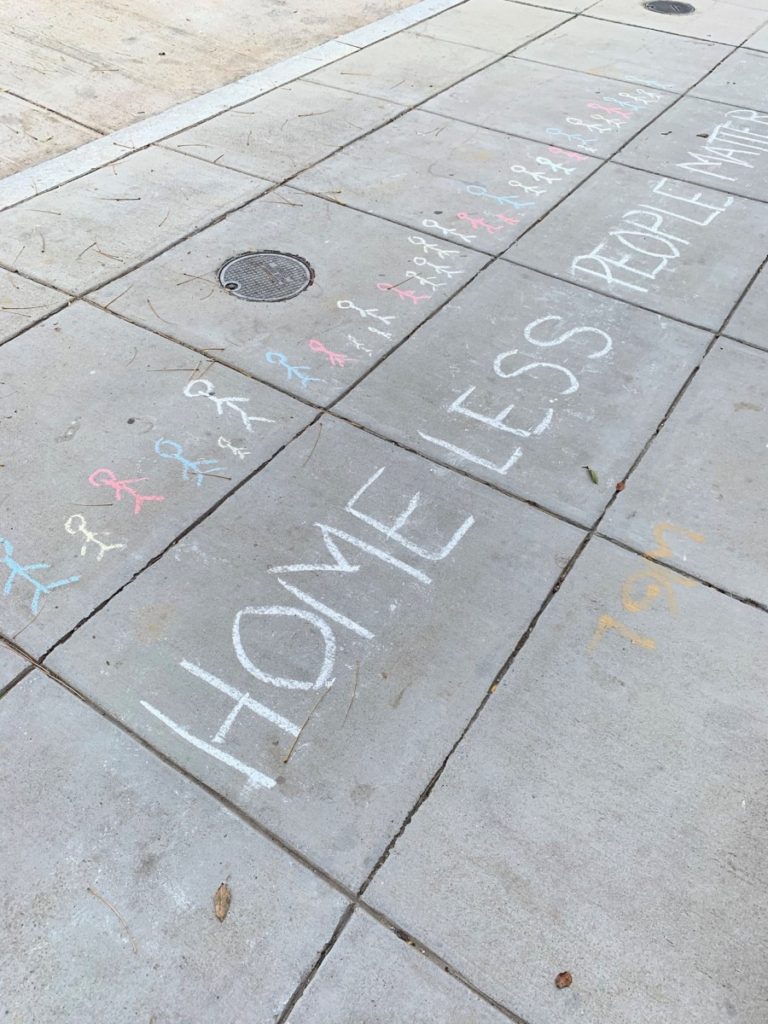 HOME LESS PEOPLE MATTER